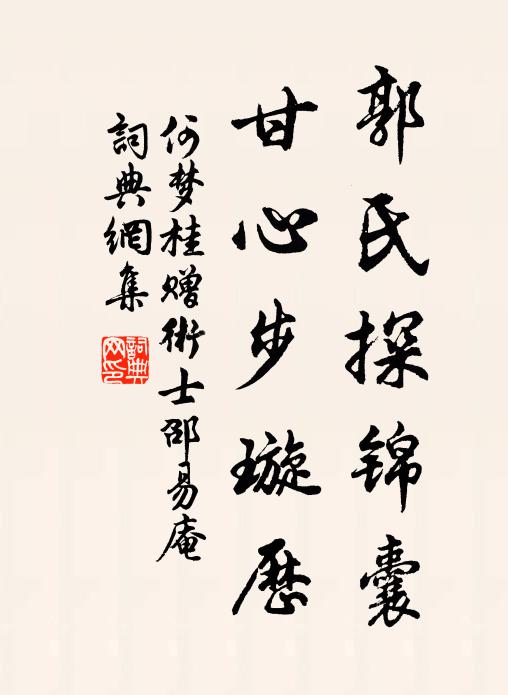 郭氏探锦囊
甘心步璇历
何梦桂赠術士邵易庵
詞典網集
詞典網印